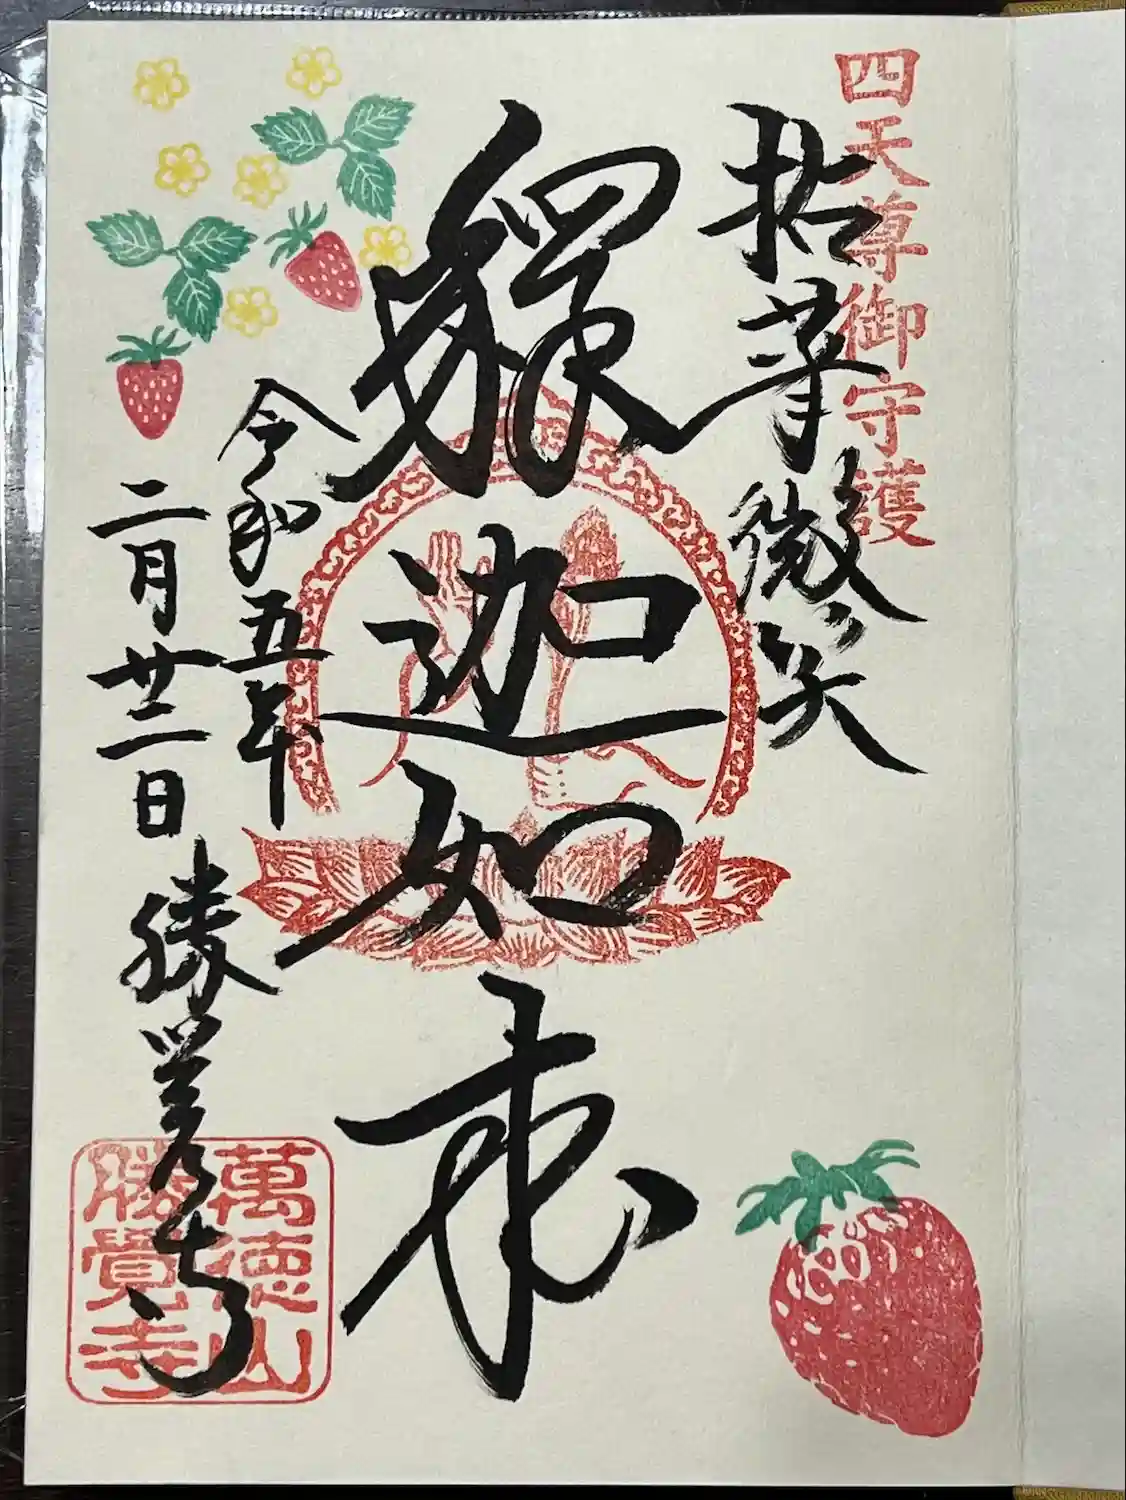 四天尊御守護
拈華微笑
釋迦如来
令和五年
二月廿二日
勝覚寺
萬徳山
勝覺寺